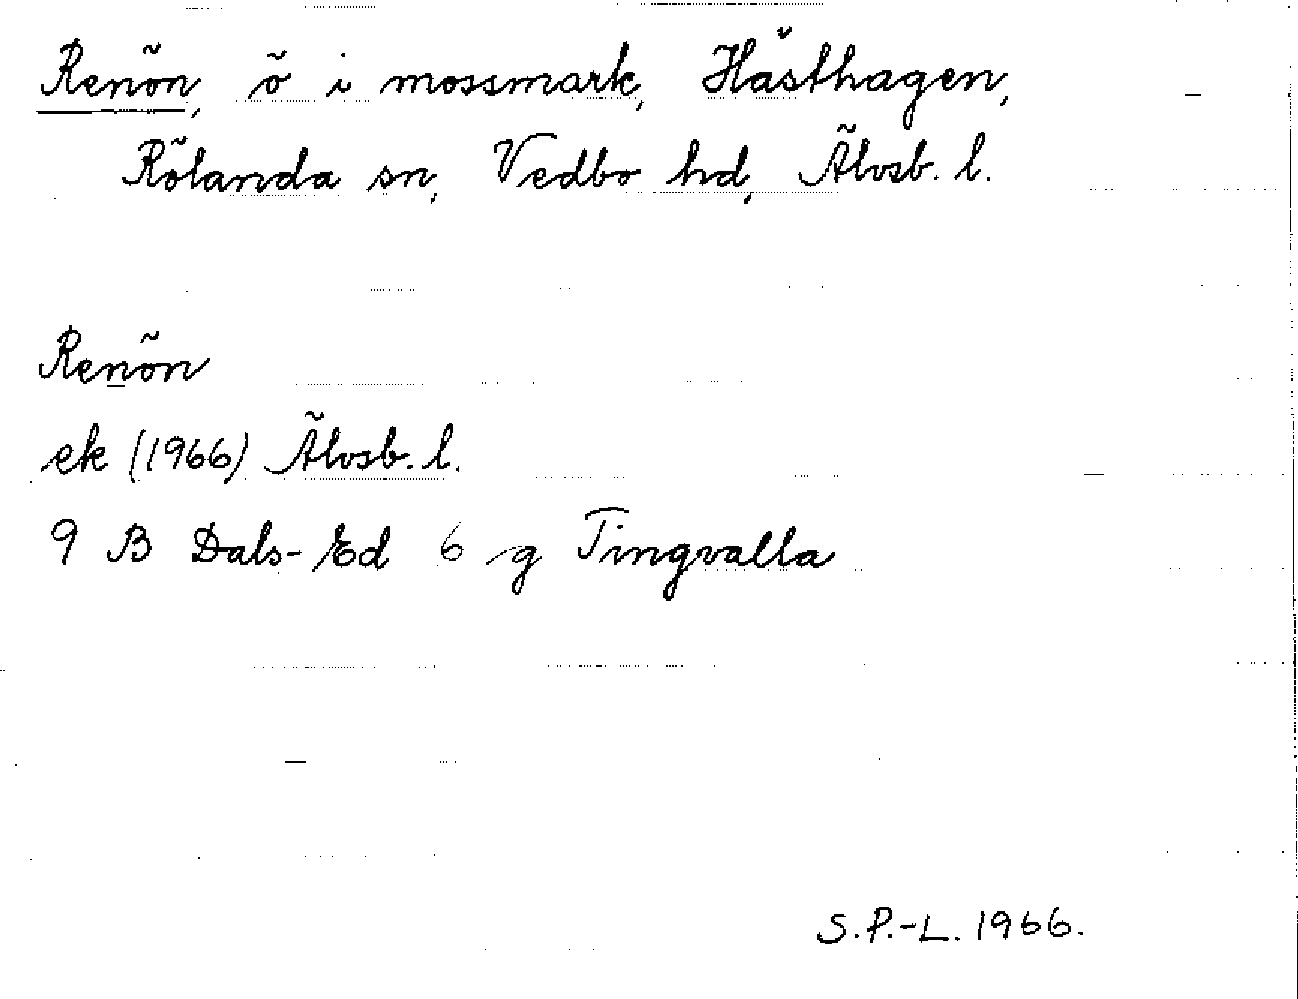 Renön, ö i mossmark, Hästhagen,
Rölanda sn, Vedbo hd, Älvsb. l.
Renön
ek (1966) Älvsb. l.
9 B Dals-Ed 6 g Tingvalla
S.P.-L. 1966.